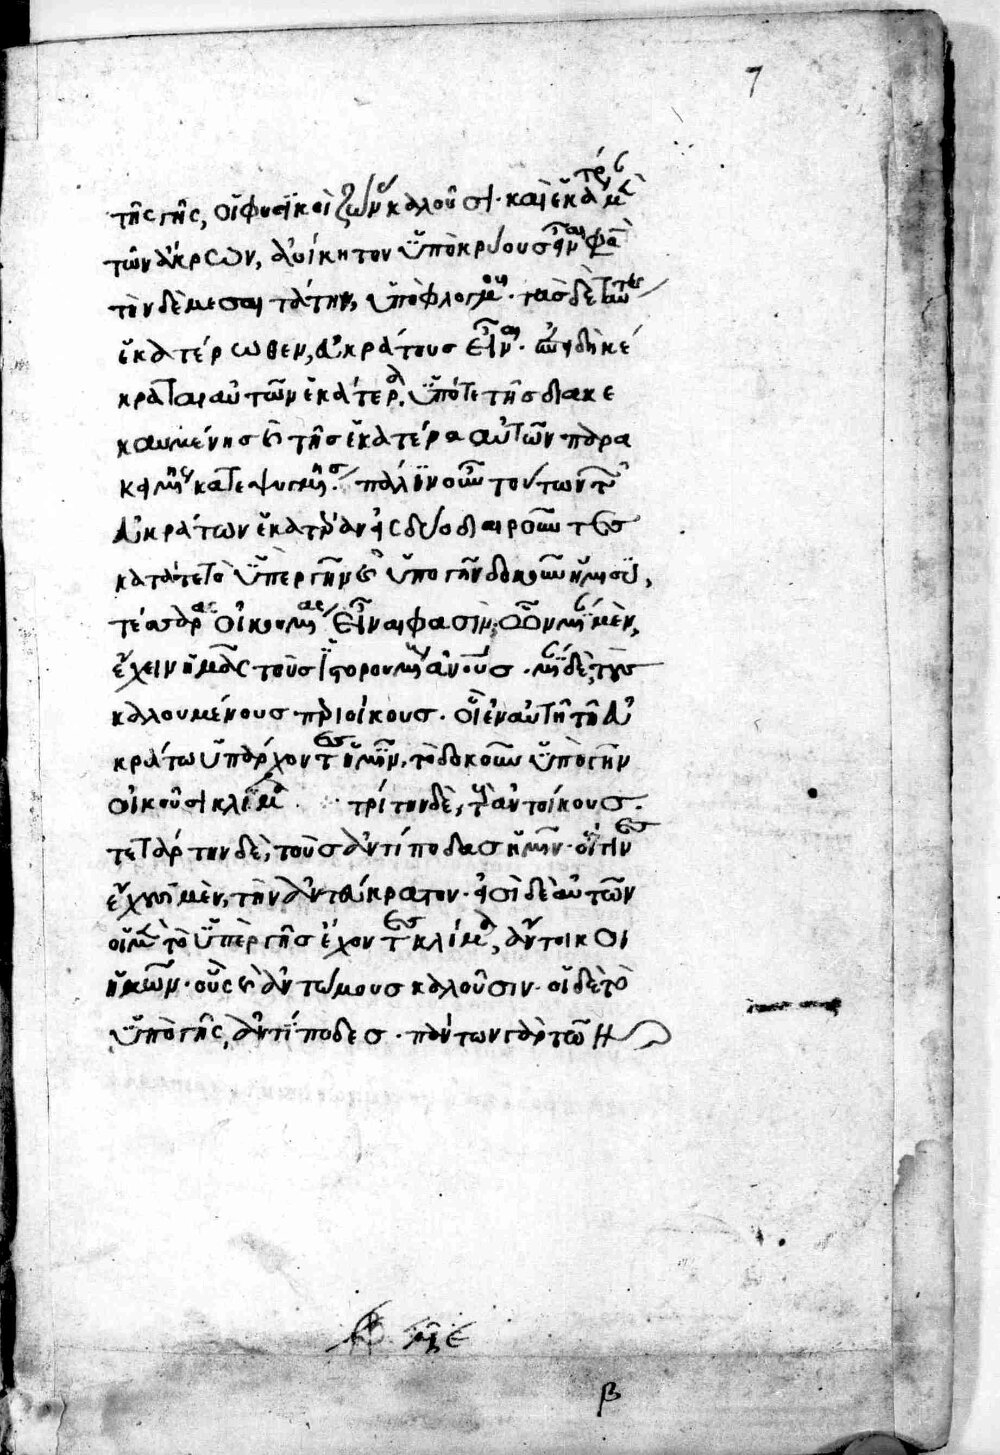 7
τῆς γῆς, οἱ φυσικοὶ ζών καλοῦσι· καὶ ἑκατέρ μὲν
τῶν ἄκρων, ἀοίκητον ὑπὸ κρύους εἶναι φα
τὴν δὲ μεσαιτάτην, ὑπὸ φλογμοῦ· τὰς δὲ ταύτης
ἑκατέρωθεν, εὐκράτους εἶναι· ὡς δὴ κε
κραται αὐτῶν ἑκάτερα ὑπό τε τῆς διακε
καυμένης καὶ τῆς ἑκατέρα αὐτῶν παρα
κειμένης κατεψυγμένης· πάλιν οὖν τούτων τῶν
εὐκράτων ἑκατέραν εἰς δύο διαιροῦντες
κατά τε τὸ ὑπὲρ γῆν καὶ ὑπὸ γῆν δοκοῦν ἡμισύ,
τέσσαρας οἰκουμένας εἶναι φασὶν· ὧν μίαν μὲν,
ἔχειν ἡμᾶς τοὺς ἱστορουμένους ἀνους· μίαν δὲ, τοὺς
καλουμένους περιοίκους· οἳ ἐν αὐτῇ τῇ εὐ
κράτω ὑπάρχοντες ἡμῖν, τὸ δοκοῦν ὑπὸ γῆν
οἰκοῦσι κλίμα τρίτην δὲ, τοὺς ἀντοίκους.
τετάρτην δὲ, τοὺς ἀντίποδας ἡμῖν· οἵτινες
ἔχουσι μὲν, τὴν ἀντεύκρατον· εἰσὶ δὲ αὐτῶν
οἱ μὲν τὸ ὑπὲρ γῆς ἔχοντες κλίμα, ἄντοικοι
ἡμῶν· οὓς καὶ ἀντώμους καλοῦσιν· οἱ δὲ τὸ
ὑπὸ γῆς, ἀντίποδες· πάντων γὰρ τῶν
β